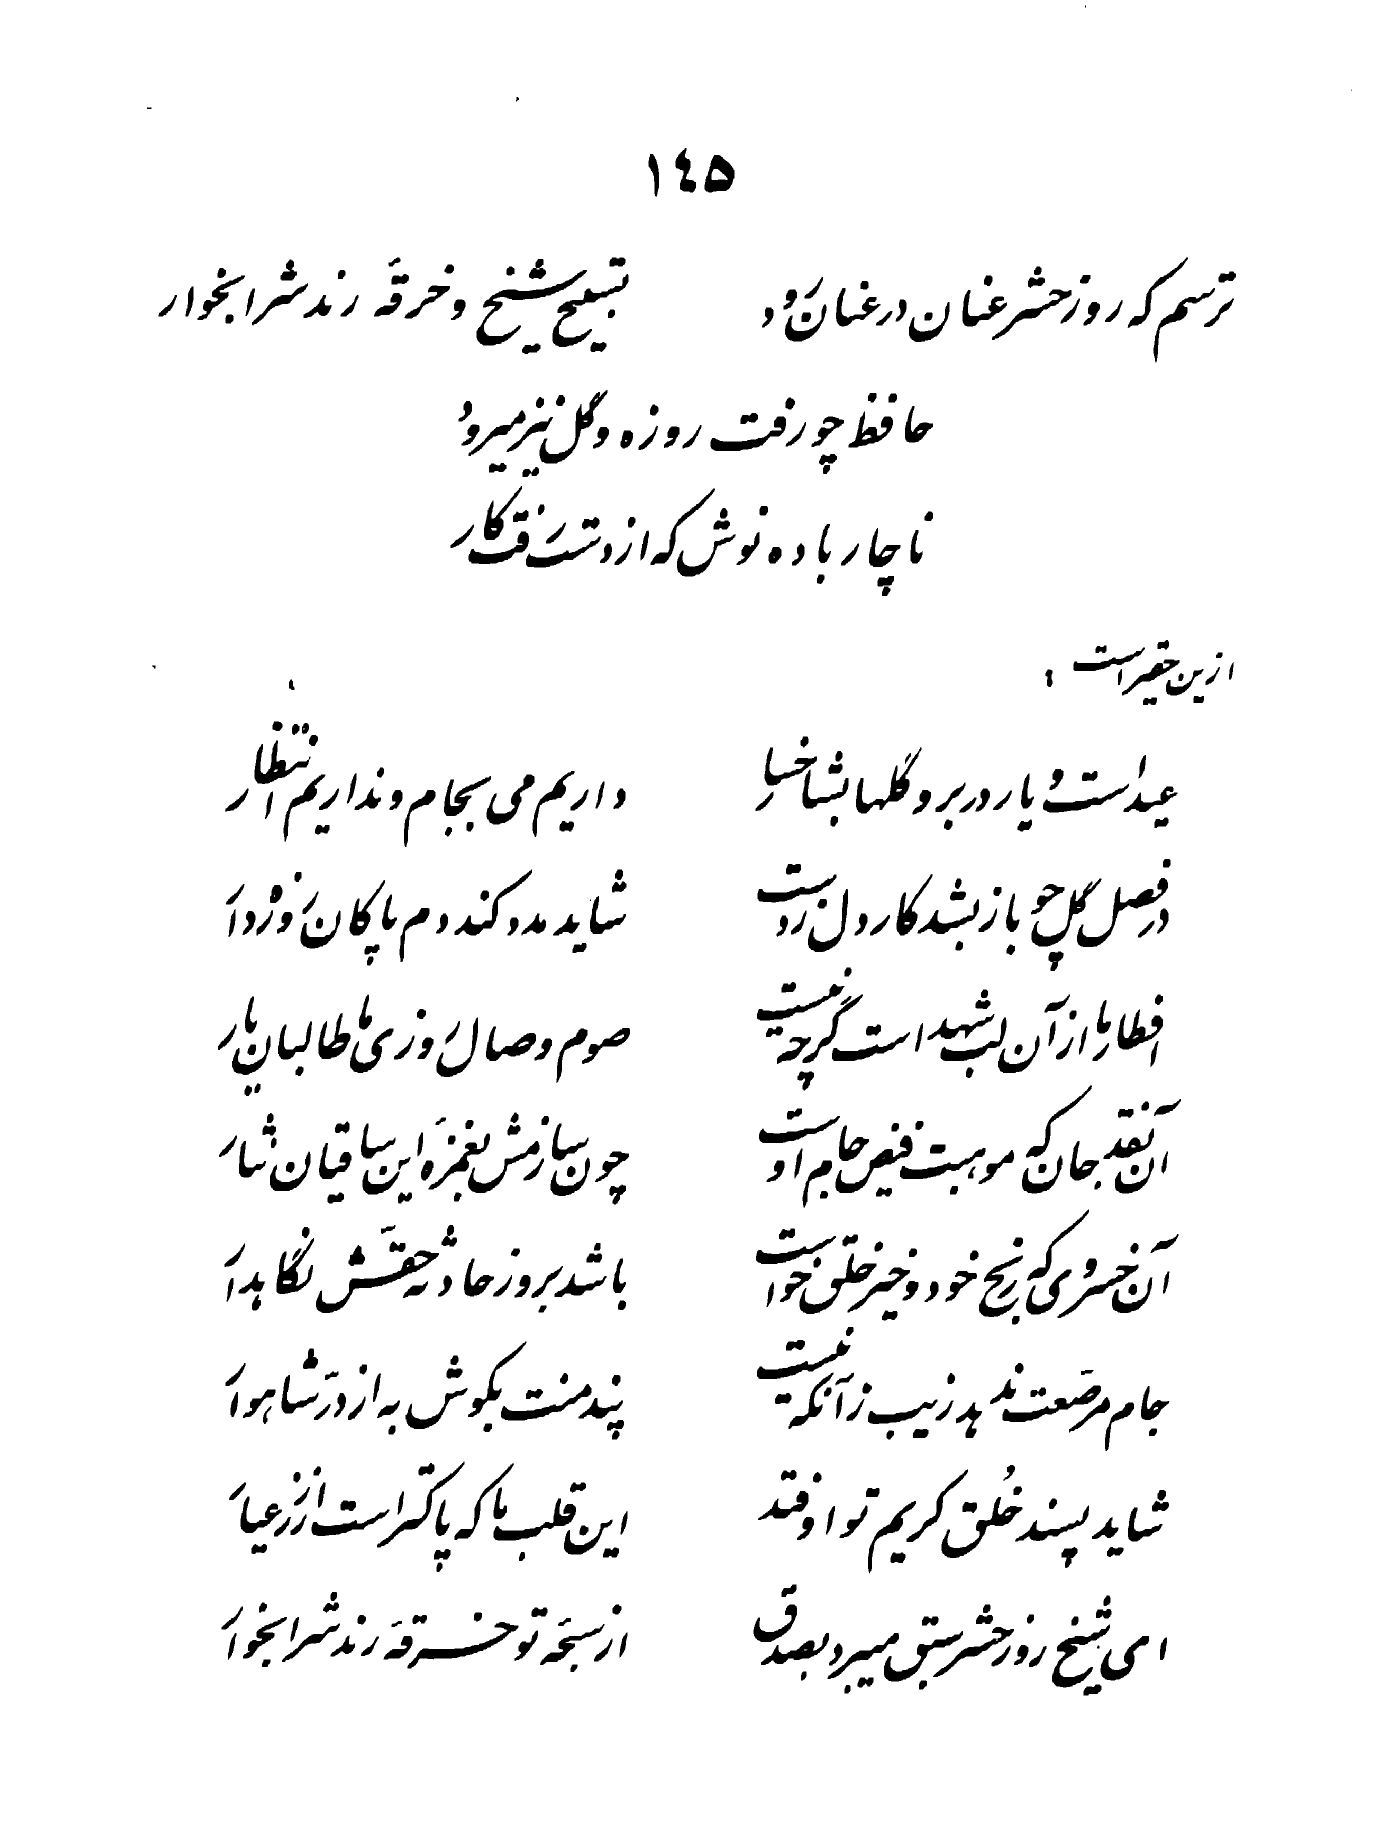 ١٤٥
ترسم که روز حشر عنان در عنان رود تسبیح شیخ و خرقهٔ رند شرابخوار
حافظ چو رفت روزه و گل نیز میرود
ناچار باده نوش که از دست رفت کار
ازین حقیر است :
عید است و یار در بر و گلها بشاخسار داریم می بجام و نداریم انتظار
در فصل گل چو باز بشد کار دل ز دست شاید مدد کند دم پاکان روزه دار
افطار ما از آن لب شهد است گرچه نیست صوم وصال روزی ما طالبان یار
آن نقد جان که موهبت فیض جام اوست چون سازمش بغمزهٔ این ساقیان نثار
آن خسروی که رنج خود و خیر خلق خواست باشد بروز حادثه حقّش نگاهدار
جام مرصّعت ندهد زیب زآنکه نیست پند منت بگوش به از درّ شاهوار
شاید پسند خُلق کریم تو اوفتد این قلب ما که پاکتر است از زر عیار
ای شیخ روز حشر سبق میبرد بصدق از سبحهٔ تو خرقهٔ رند شرابخوار